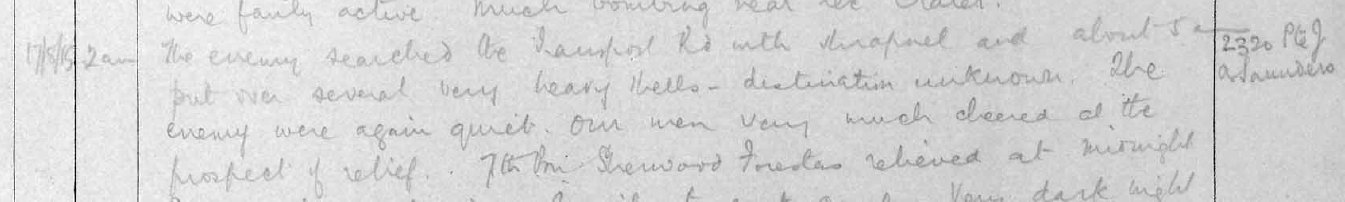 were fairly active. Much bombing near the Crater.
17/8/15 2 am The enemy searched the Transport Rd with shrapnel and about 5 a 2320 Pte J
put over several very heavy shells - destination unknown. The A Saunders
enemy were again quiet. Our men very much cheered at the
prospect of relief. 7th Bn Sherwood Forestas relieved at midnight
Very dark night